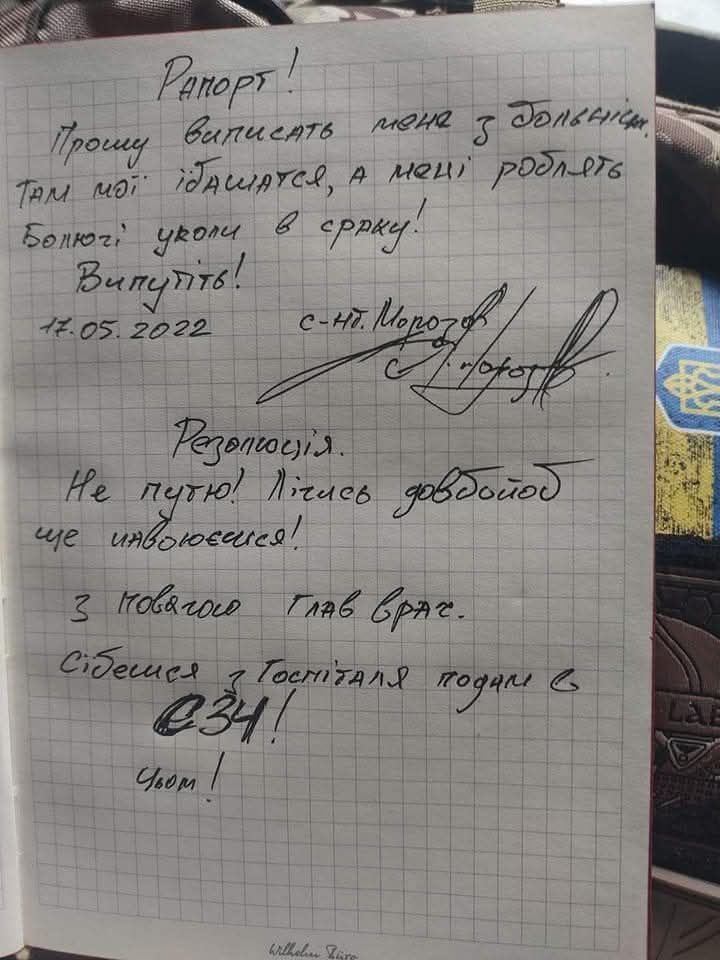 Рапорт!
Прошу виписать мене з больніци.
Там мої їбашатся, а мені роблять
Болючі уколи в сраку!
Випутіть!
17.05.2022 с-нт. Морозов
Резолюція.
Не путю! Лічись довбойоб
ще навоюєшся!
З повагою Глав врач.
Сібешся з Госпіталя подам в
СЗЧ!
Чьом!
Wilhelm Büro